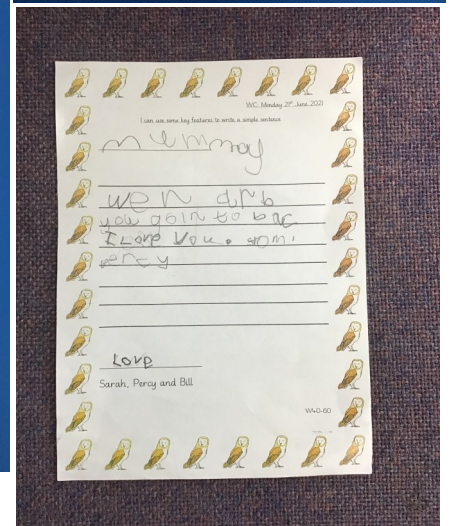 WC: Monday 21st June 2021
I can use some key features to write a simple sentence.
mummy
wen arb
you goin to bac
I Love you. 
percy
Love
Sarah, Percy and Bill
W40-60